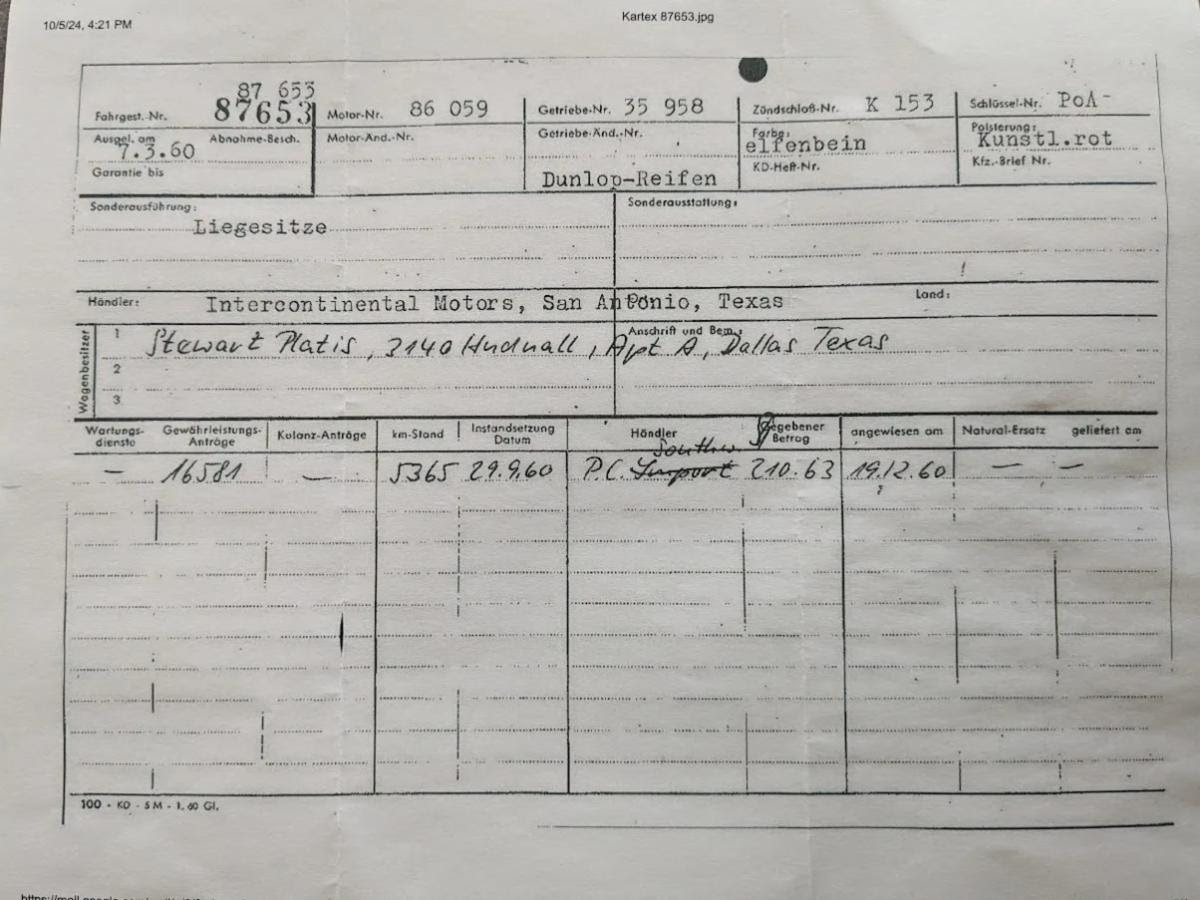 10/5/24, 4:21 PM Kartex 87653.jpg
87 653
Fahrgest.-Nr. 87653 Motor-Nr. 86 059 Getriebe-Nr. 35 958 Zündschloß-Nr. K 153 Schlüssel-Nr. PoA-
Ausgel. am 7.3.60 Abnahme-Besch. Motor-Änd.-Nr. Getriebe-Änd.-Nr. Farbe: elfenbein Polsterung: Kunstl.rot
Garantie bis Dunlop-Reifen KD-Heft-Nr. Kfz.-Brief Nr.
Sonderausführung: Sonderausstattung:
Liegesitze
Händler: Intercontinental Motors, San Antonio, Texas Land:
Wagenbesitzer Anschrift und Bem.:
1 Stewart Platis, 3140 Hudnall, Apt A, Dallas Texas
2
3
Wartungs-dienste Gewährleistungs-Anträge Kulanz-Anträge km-Stand Instandsetzung Datum Händler gegebener Betrag angewiesen am Natural-Ersatz geliefert am
Southw.
— 16581 — 5365 29.9.60 P.C. Import 210.63 19.12.60 — —
100 - KD - 5 M - 1. 60 Gl.